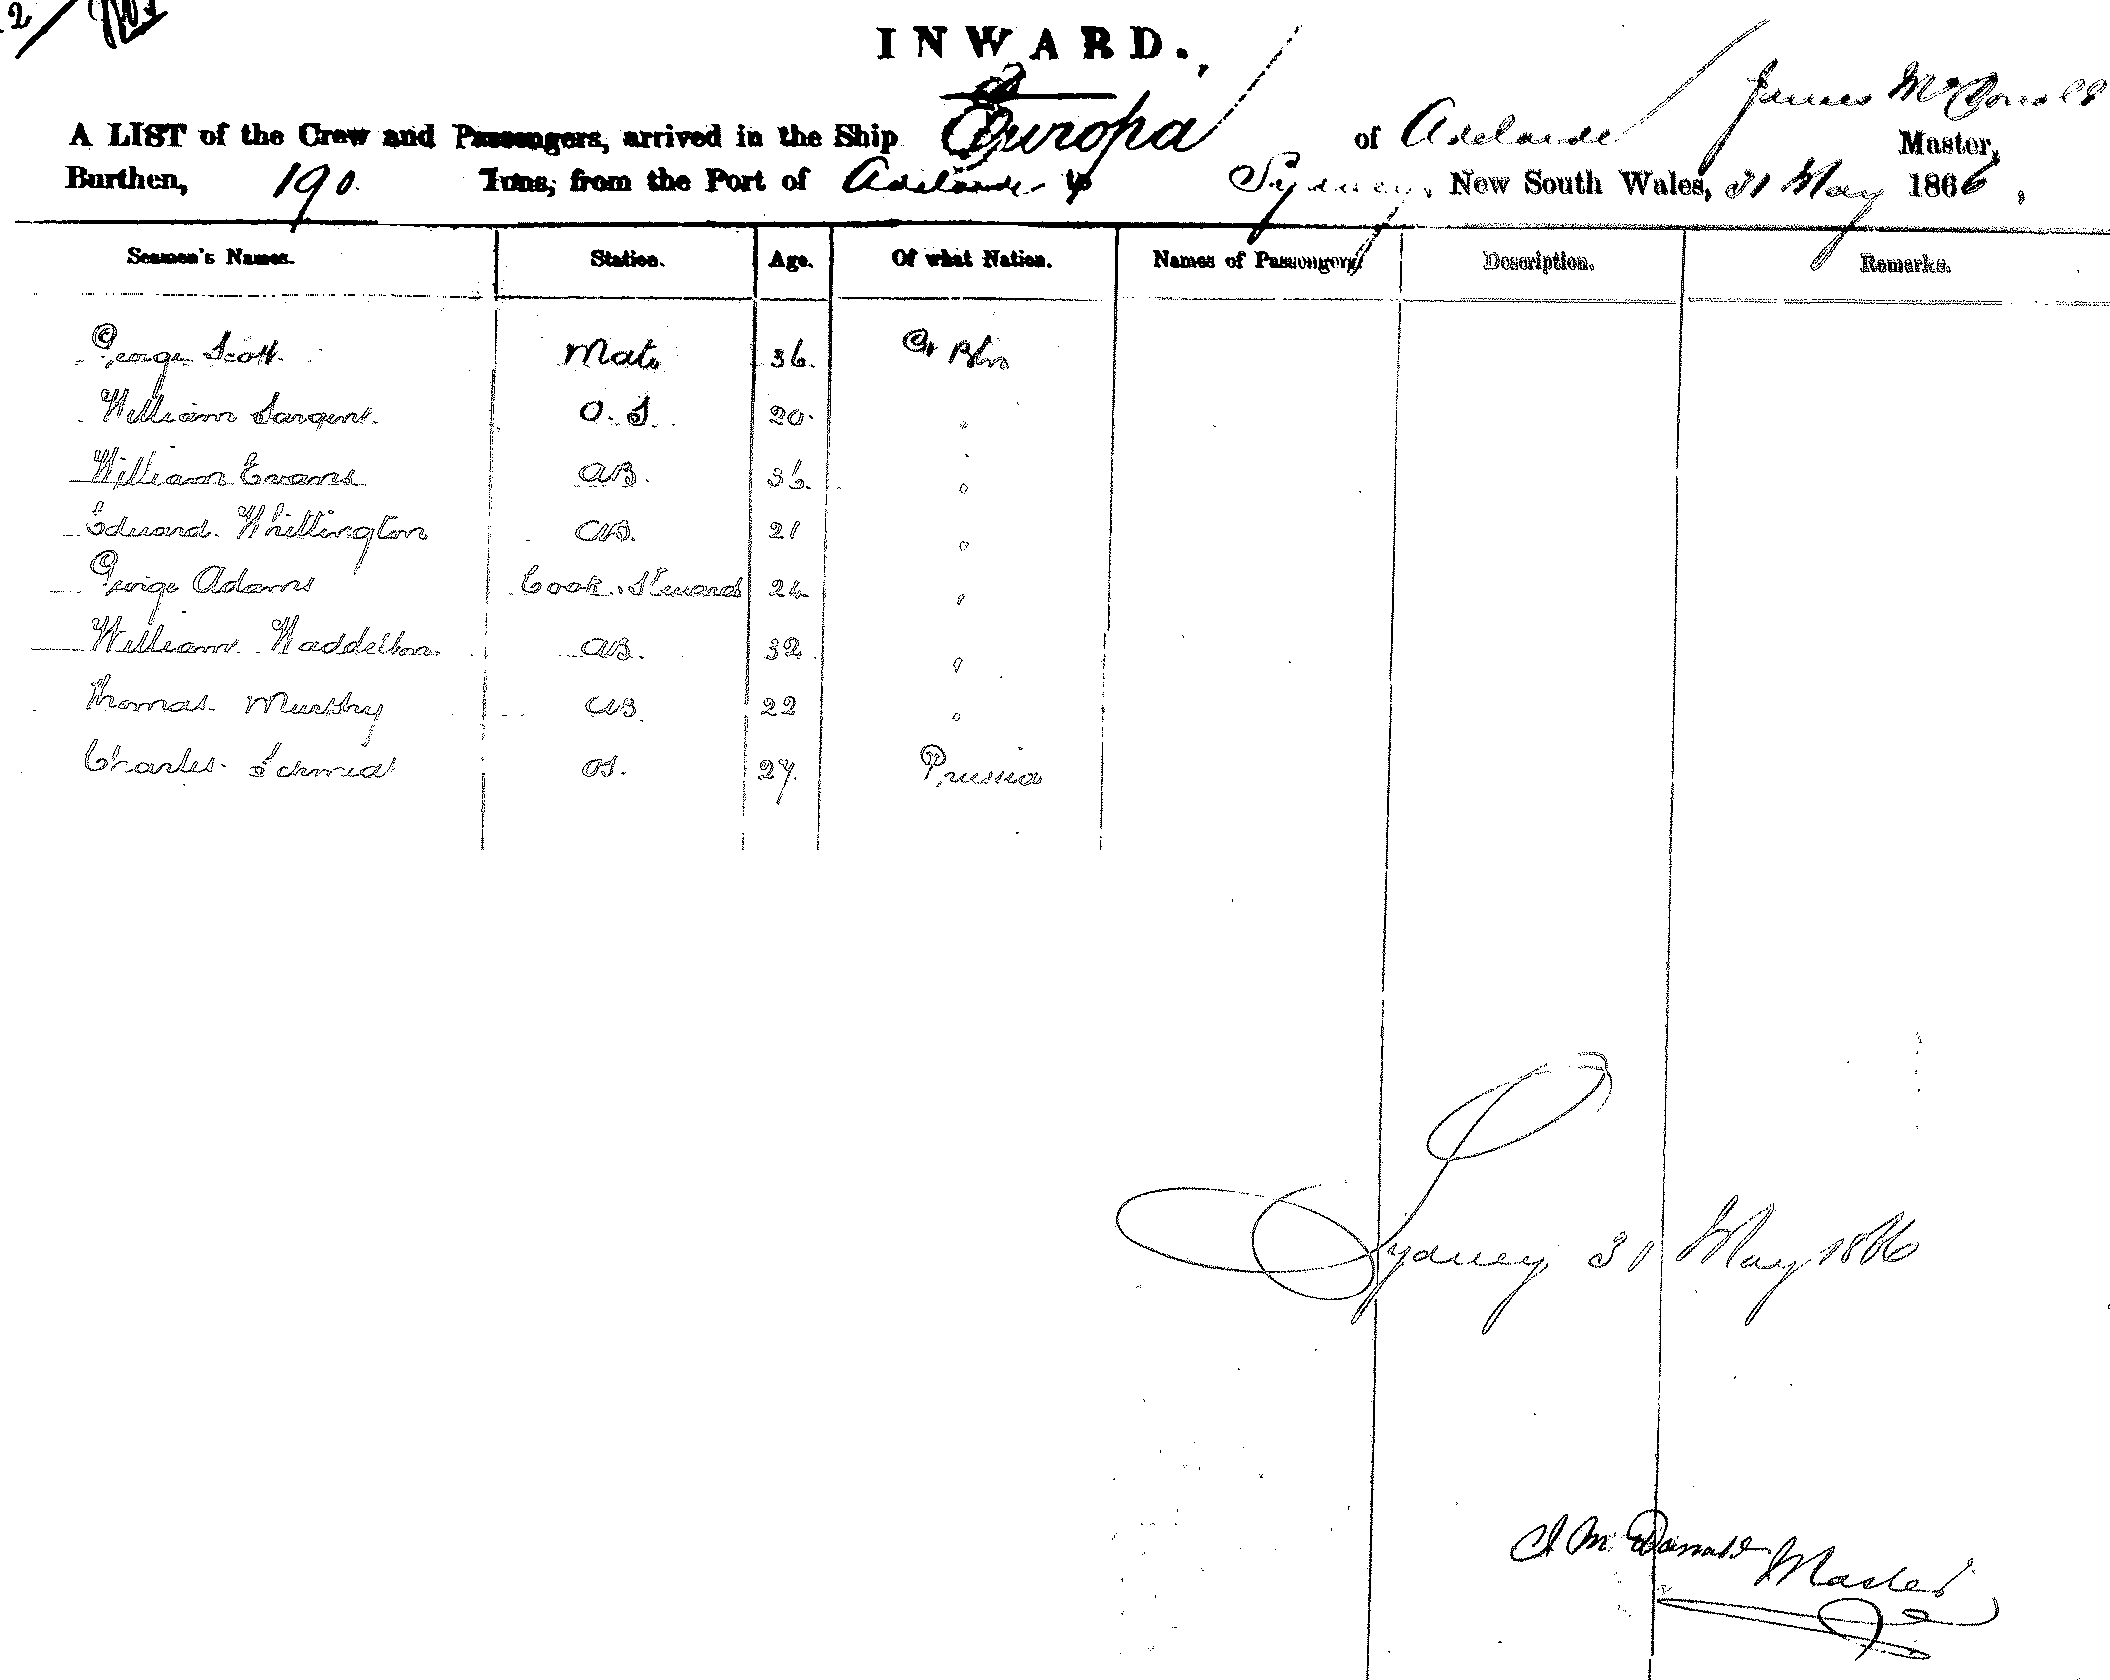 INWARD.
A LIST of the Crew and Passengers, arrived in the Ship Europa of Adelaide James McDonald Master,
Burthen, 190 Tons, from the Port of Adelaide to Sydney, New South Wales, 31 May 1866.
Seamen's Names. Station. Age. Of what Nation. Names of Passengers. Description. Remarks.
George Scott Mate 36 Gt Btn
William Sargent O.S. 20 "
William Evans AB. 36 "
Edward Whittington AB. 21 "
George Adams Cook & Steward 24 "
William Waddelton AB. 32 "
Thomas Murphy AB 22 "
Charles Schmid OS. 27 Prussia
Sydney 31 May 1866
J McDonald Master